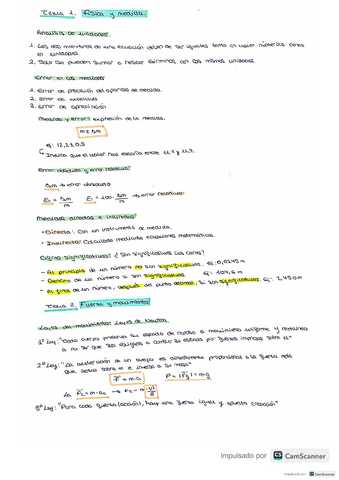 Tema 1. Física y medida.
Análisis de unidades
1. Los dos miembros de una ecuación deben de ser iguales tanto en valor numérico como
en unidades.
2. Solo se pueden sumar o restar términos con las mismas unidades.
Error en las medidas
1. Error de precisión del aparato de medida.
2. Error de
3. Error de apreciación
Medida y error: expresión de la medida.
m ± Δm
ej: 12,2±0,5
Indica que el valor real estaría entre 11,7 y 12,7.
Error absoluto y error relativo
Δm → error absoluto
Er = Δm/m Er = 100· Δm/m → error relativo
Medidas directas e indirectas
· Directa: Con un instrumento de medida.
· Indirecta: Calculada mediante ecuaciones matemáticas.
Cifras significativas: ¿Son significativos los ceros?
- Al principio de un número no son significativos. Ej: 0,0245 m
- Dentro de un número sí son significativos. Ej: 104,6 m
- Al final de un número, después del punto decimal, sí son significativos. Ej: 2,450 m
Tema 2. Fuerza y movimiento
Leyes del movimiento: Leyes de Newton.
1ª Ley: "Cada cuerpo preserva su estado de reposo o movimiento uniforme y rectilíneo
a no ser que sea obligado a cambiar su estado por fuerzas impresas sobre él"
2ª Ley: "La aceleración de un cuerpo es directamente proporcional a la fuerza neta
que actúa sobre él e inversa a su masa"
F = m·a P = |Fg| = m·g
La Fc = m·ac → Fc = m· v²/R
3ª Ley: "Para cada fuerza (acción), hay una fuerza igual y opuesta (reacción)"
impulsado por CS CamScanner
impulsado por CS CamScanner